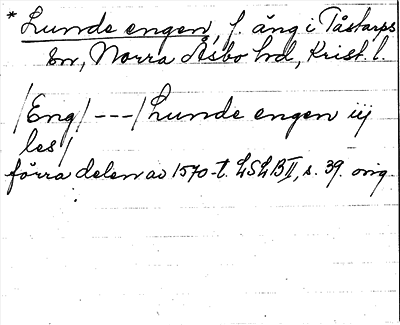 * Lunde engen, f. äng i Tåstarps
sn, Norra Åsbo hd, Krist. l.
/Eng/ --- / Lunde engen iij
les /
förra delen av 1570-t. LSLB II, s. 39. orig.